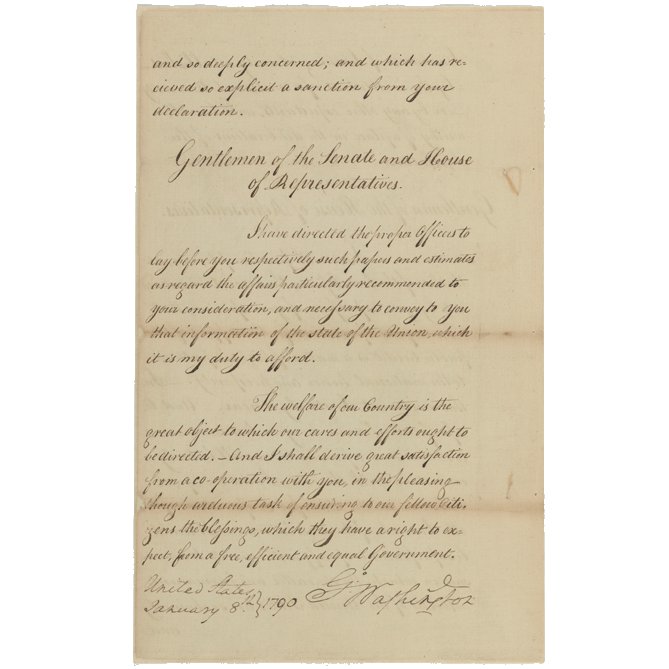 and so deeply concerned; and which has re-
cieved so explicit a sanction from your
declaration.
Gentlemen of the Senate and House
of Representatives.
I have directed the proper Officers to
lay before you respectively such papers and estimates
as regard the affairs particularly recommended to
your consideration, and necessary to convey to you
that information of the state of the Union, which
it is my duty to afford.
The welfare of our Country is the
great object to which our cares and efforts ought to
be directed. – And I shall derive great satisfaction
from a co-operation with you, in the pleasing
though arduous task of ensuring to our fellow Citi-
zens the blessings, which they have a right to ex-
pect, from a free, efficient and equal Government.
United States
January 8th } 1790
Go. Washington